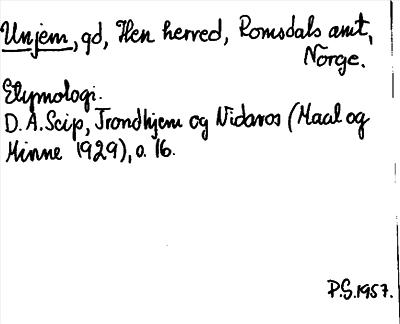 Unjem, gd, Hen herred, Romsdals amt,
Norge.
Etymologi.
D. A. Seip, Trondhjem og Nidaros (Maal og
Minne 1929), s. 16.
P.S. 1957.